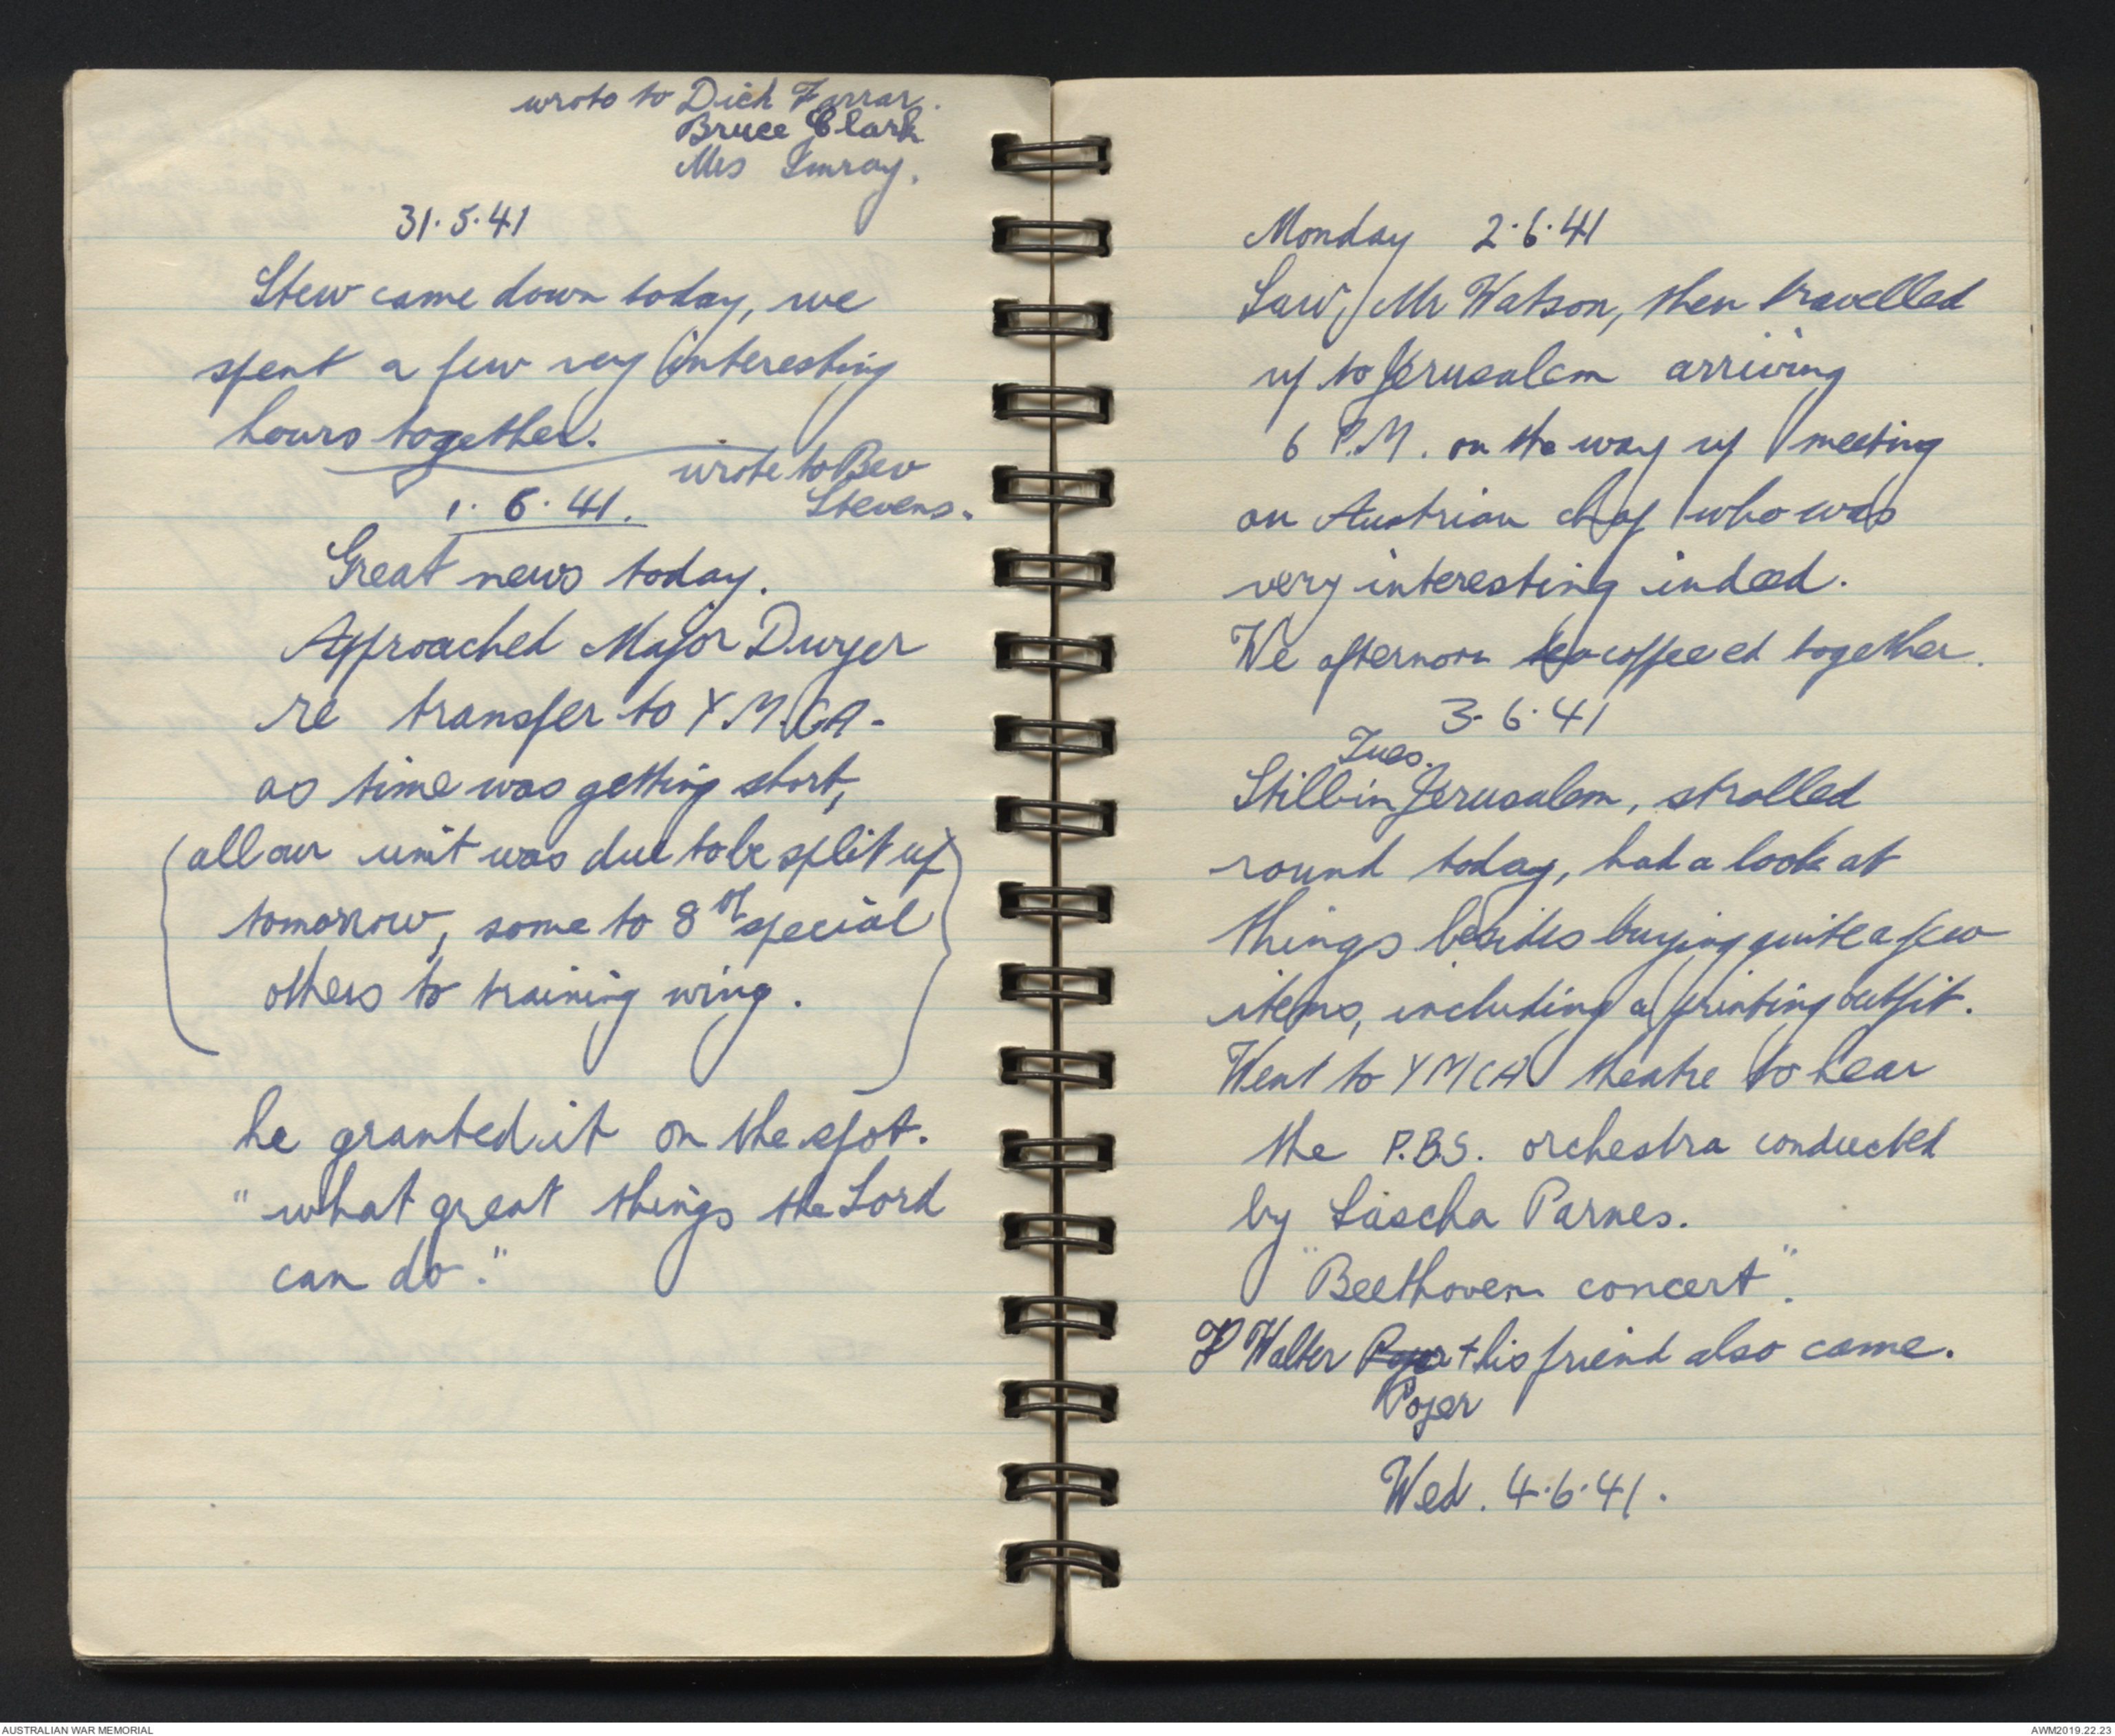 wrote to Dick Farrar.
Bruce Clark
Mrs Imray.
31.5.41
Stew came down today, we
spent a few very interesting
hours together.
wrote to Bev
Stevens.
1.6.41.
Great news today.
Approached Major Dwyer
re transfer to Y.M.C.A.
as time was getting short,
(all our unit was due to be split up
tomorrow, some to 8th special
others to training wing.)
he granted it on the spot.
"what great things the Lord
can do."
Monday 2.6.41
Saw, Mr Watson, then travelled
up to Jerusalem arriving
6 P.M. on the way up meeting
an Austrian chap who was
very interesting indeed.
We afternoon tea coffeeed together.
3.6.41
Tues.
Still in Jerusalem, strolled
round today, had a look at
things besides buying quite a few
items, including a printing outfit.
Went to YMCA theatre to hear
the P.B.S. orchestra conducted
by Sascha Parnes.
"Beethoven concert".
Walter + his friend also came.
Pojer
Wed. 4.6.41.
AUSTRALIAN WAR MEMORIAL
AWM2019.22.23